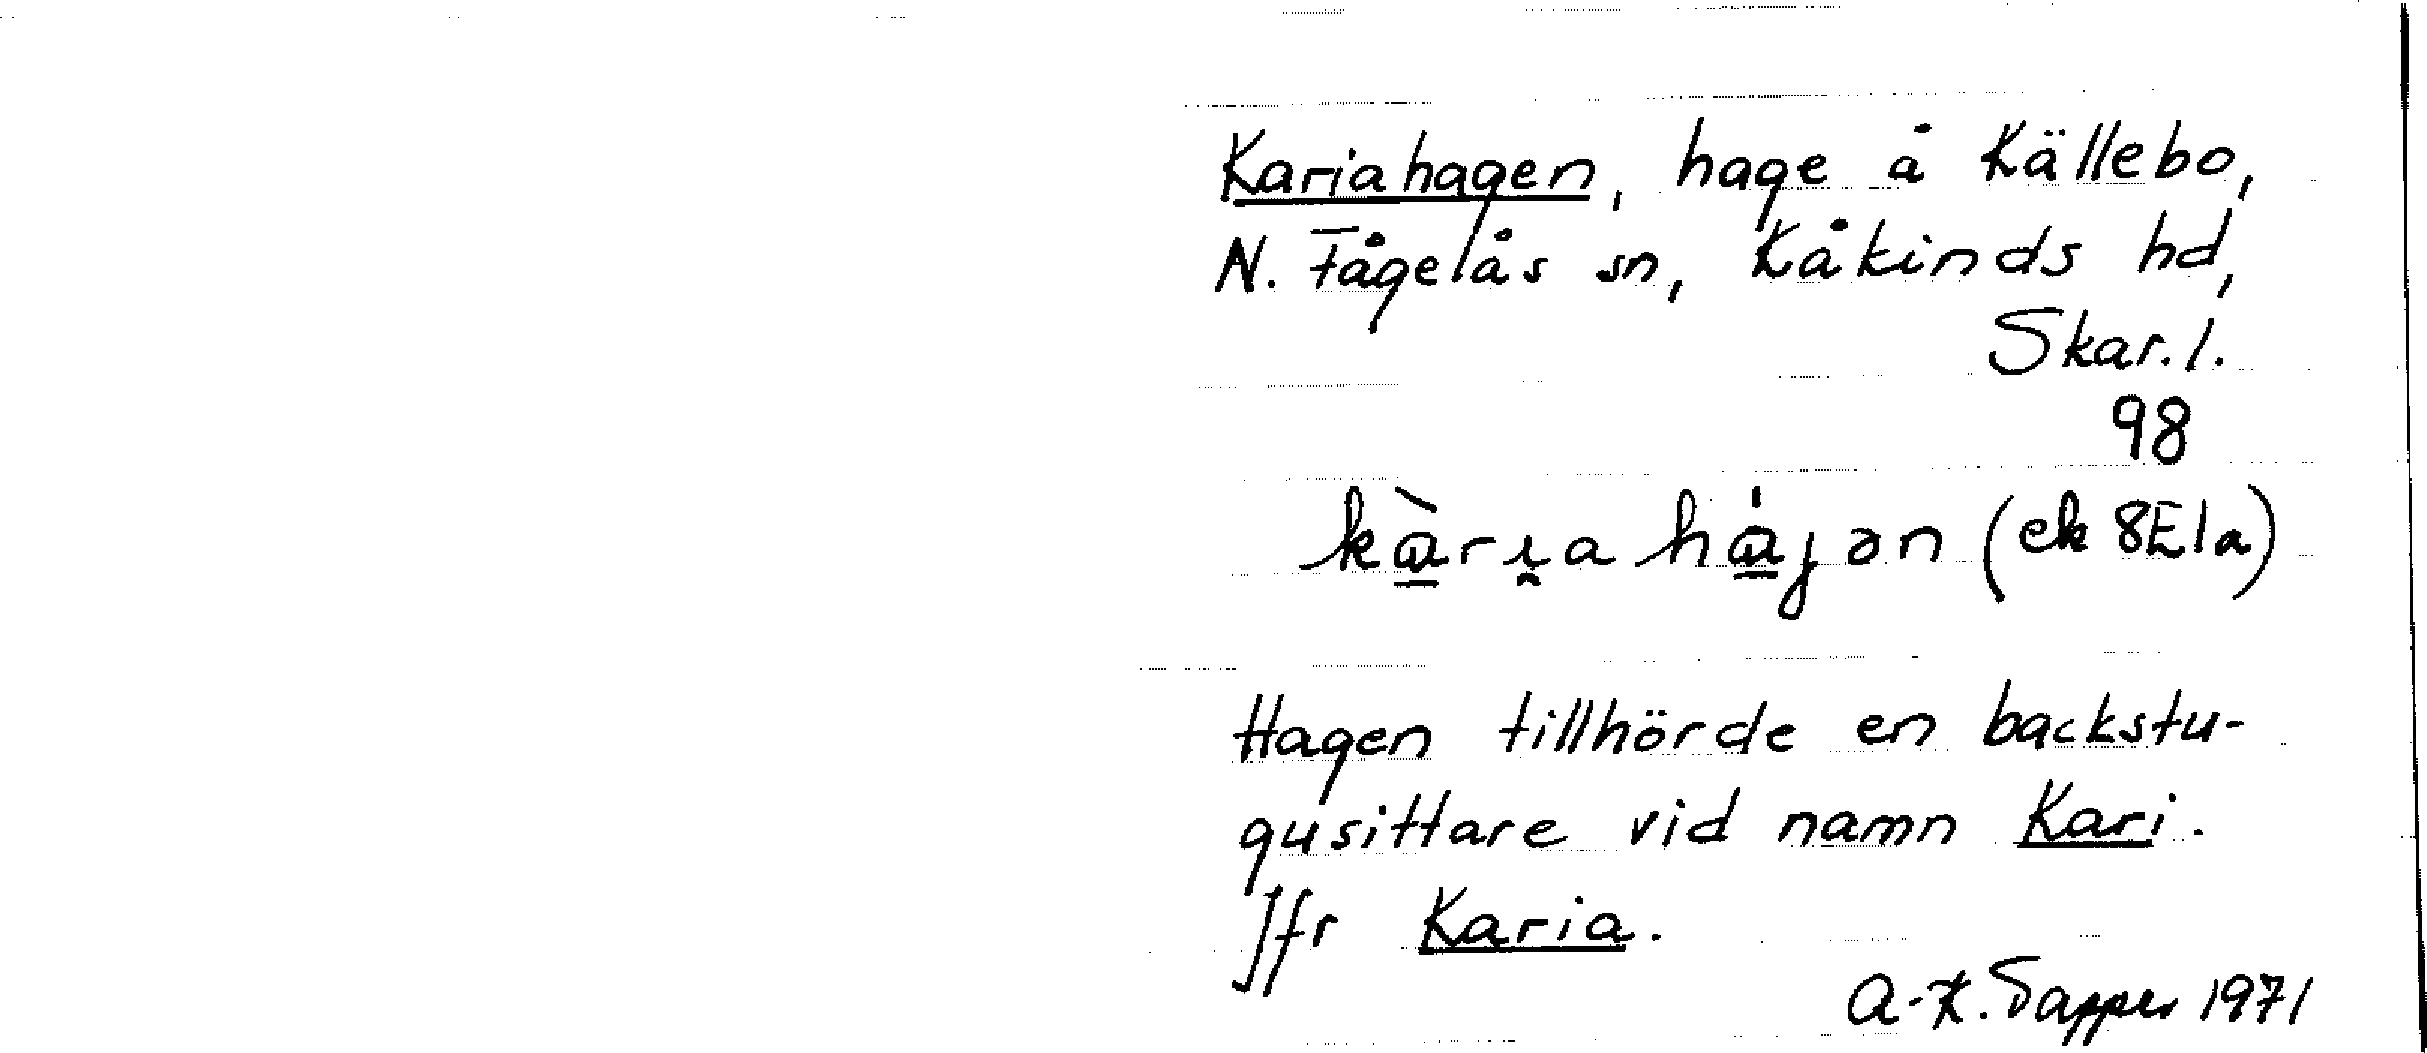 Kariahagen, hage å Källebo,
N. Fågelås sn, Kåkinds hd,
Skar. l.
98
kàrıa hájən (ek 8E1a)
Hagen tillhörde en backstu-
gusittare vid namn Kari.
Jfr Karia.
A-K. Tapper 1971